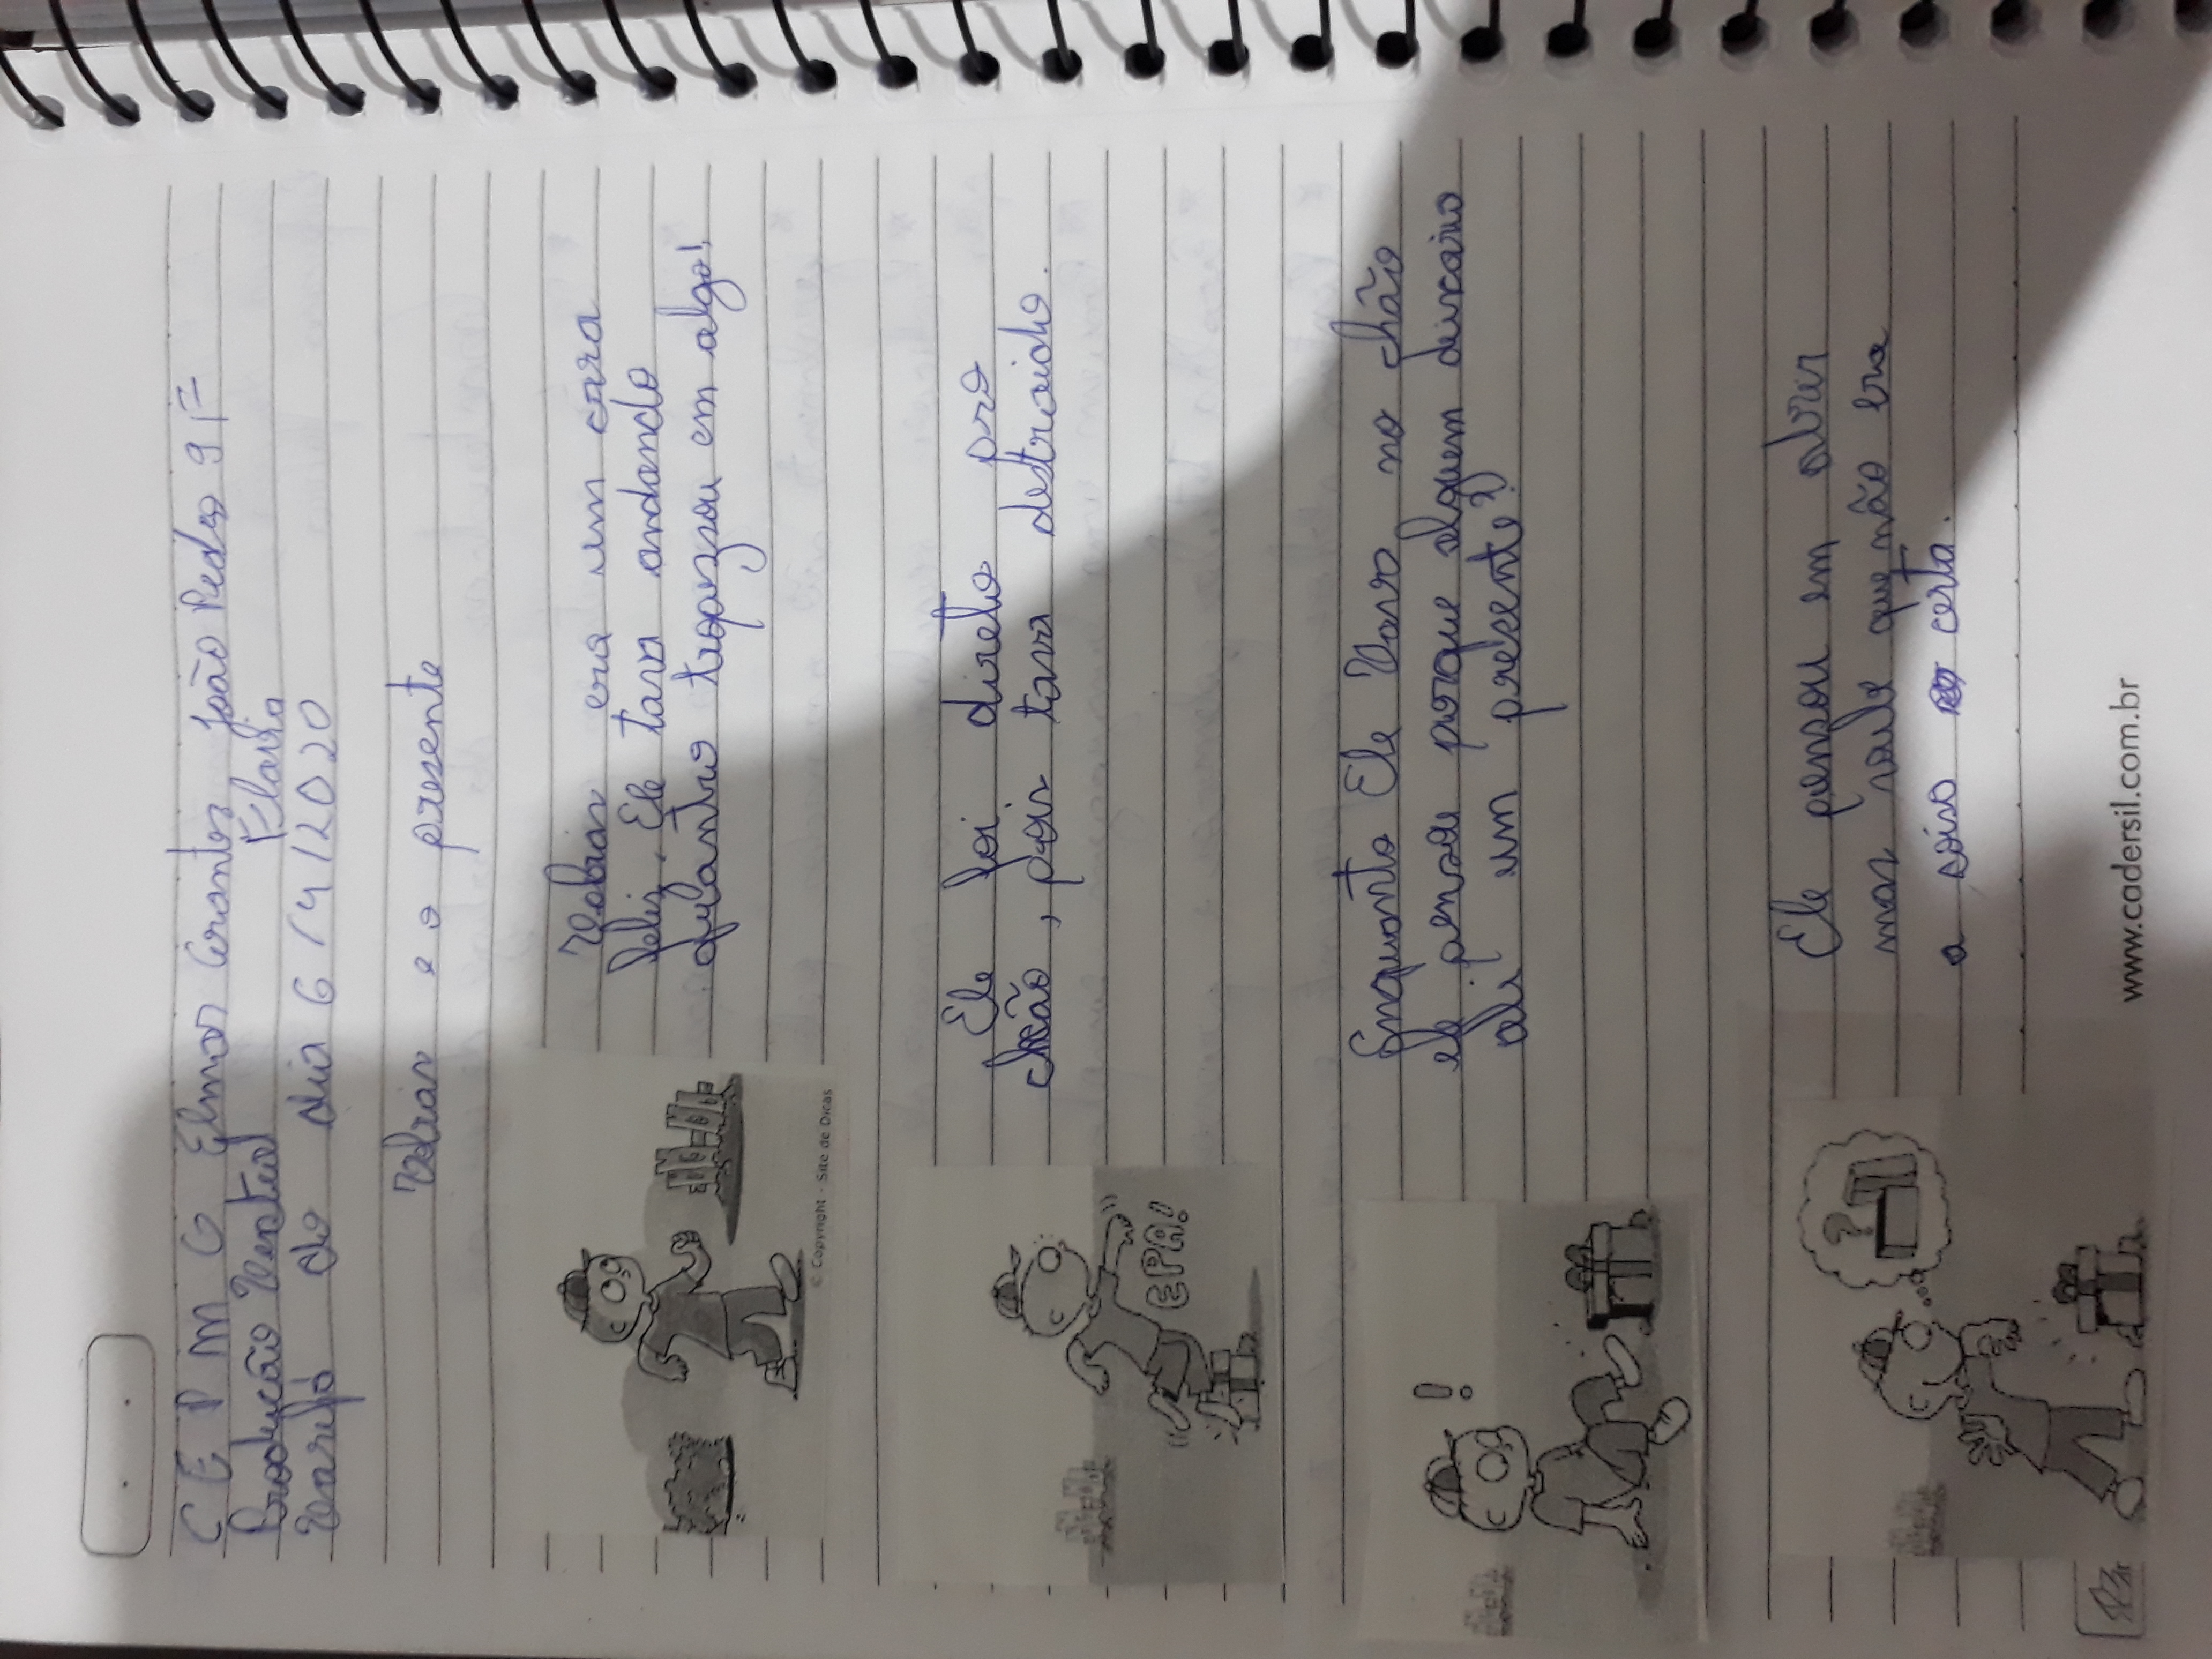 CEPMG Elmar Arantes João Pedro 9F
Produção Textual Flavia
Tarefa do dia 6/4/2020
Tobias e o presente
Tobias era um cara
feliz. Ele tava andando
quanto tropezsou em algo!
© Copyright - Site de Dicas
Ele foi direto pro
chão, pois tava destraido.
EPA!
Enquanto Ele Tava no chão
ele pensou porque alguem deixario
ali um presente?
!
Ele pensou em abrir
mas sabe que não era
a coisa certa.
?
www.cadersil.com.br